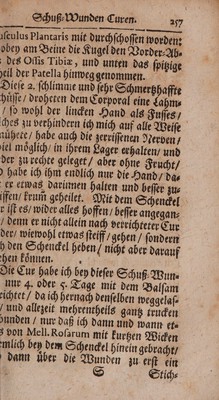 Schuß-Wunden Curen. 257
usculus Plantaris mit durchschossen worden;
obey am Beine die Kugel den Vorder-Ab-
des Ossis Tibiæ, und unten das spitzige
heil der Patella hinweg genommen.
Diese 2. schlimme und sehr Schmertzhaffte
hüsse/ droheten dem Corporal eine Lahm-
/ so wohl der lincken Hand als Fusses/
lches zu verhindern ich mich auf alle Weise
mühete/ habe auch die zerrissenen Nerven/
viel möglich/ in ihrem Lager erhalten/ und
der zu rechte geleget/ aber ohne Frucht/
habe ich ihm endlich nur die Hand/ da-
er etwas darinnen halten und besser zu-
iffen/ krum̃ geheilt. Mit dem Schenckel
r ist es/ wider alles hoffen/ besser angegan-
/ denn er nicht allein nach verrichteter Cur
der/ wiewohl etwas steiff/ gehen/ sondern
den Schenckel heben/ nicht aber darauf
hen können.
Die Cur habe ich bey dieser Schuß-Wun-
nur 4. oder 5. Tage mit dem Balsam
richtet/ da ich hernach denselben weggelas-
/ und allezeit mehrentheils gantz trucken
bunden/ nur daß ich dann und wann et-
s von Mell. Rosarum mit kurtzen Wicken
rmlich bey dem Schenckel hinein gebracht/
dann über die Wunden zu erst ein
S Stich-